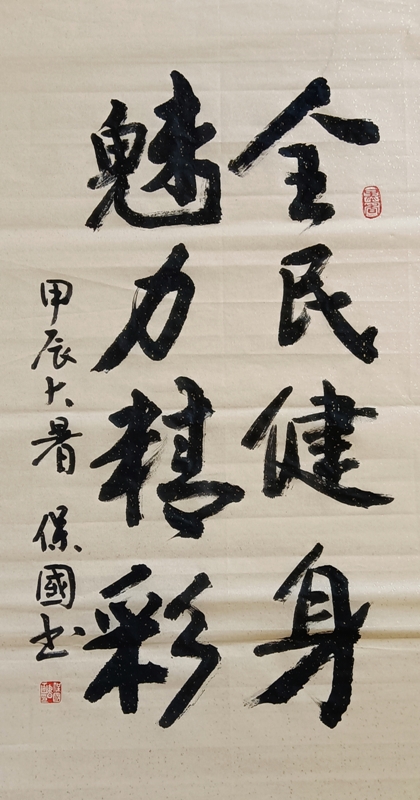 全民健身
魅力精彩
甲辰大暑 保國书